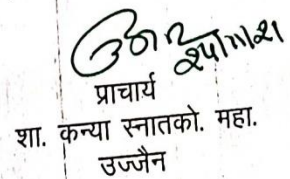 प्राचार्य
शा. कन्या स्नातको. महा.
उज्जैन